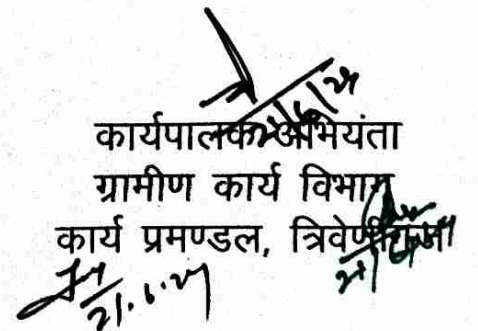 कार्यपालक अभियंता
ग्रामीण कार्य विभाग
कार्य प्रमण्डल, त्रिवेणीगंज
21.6.24